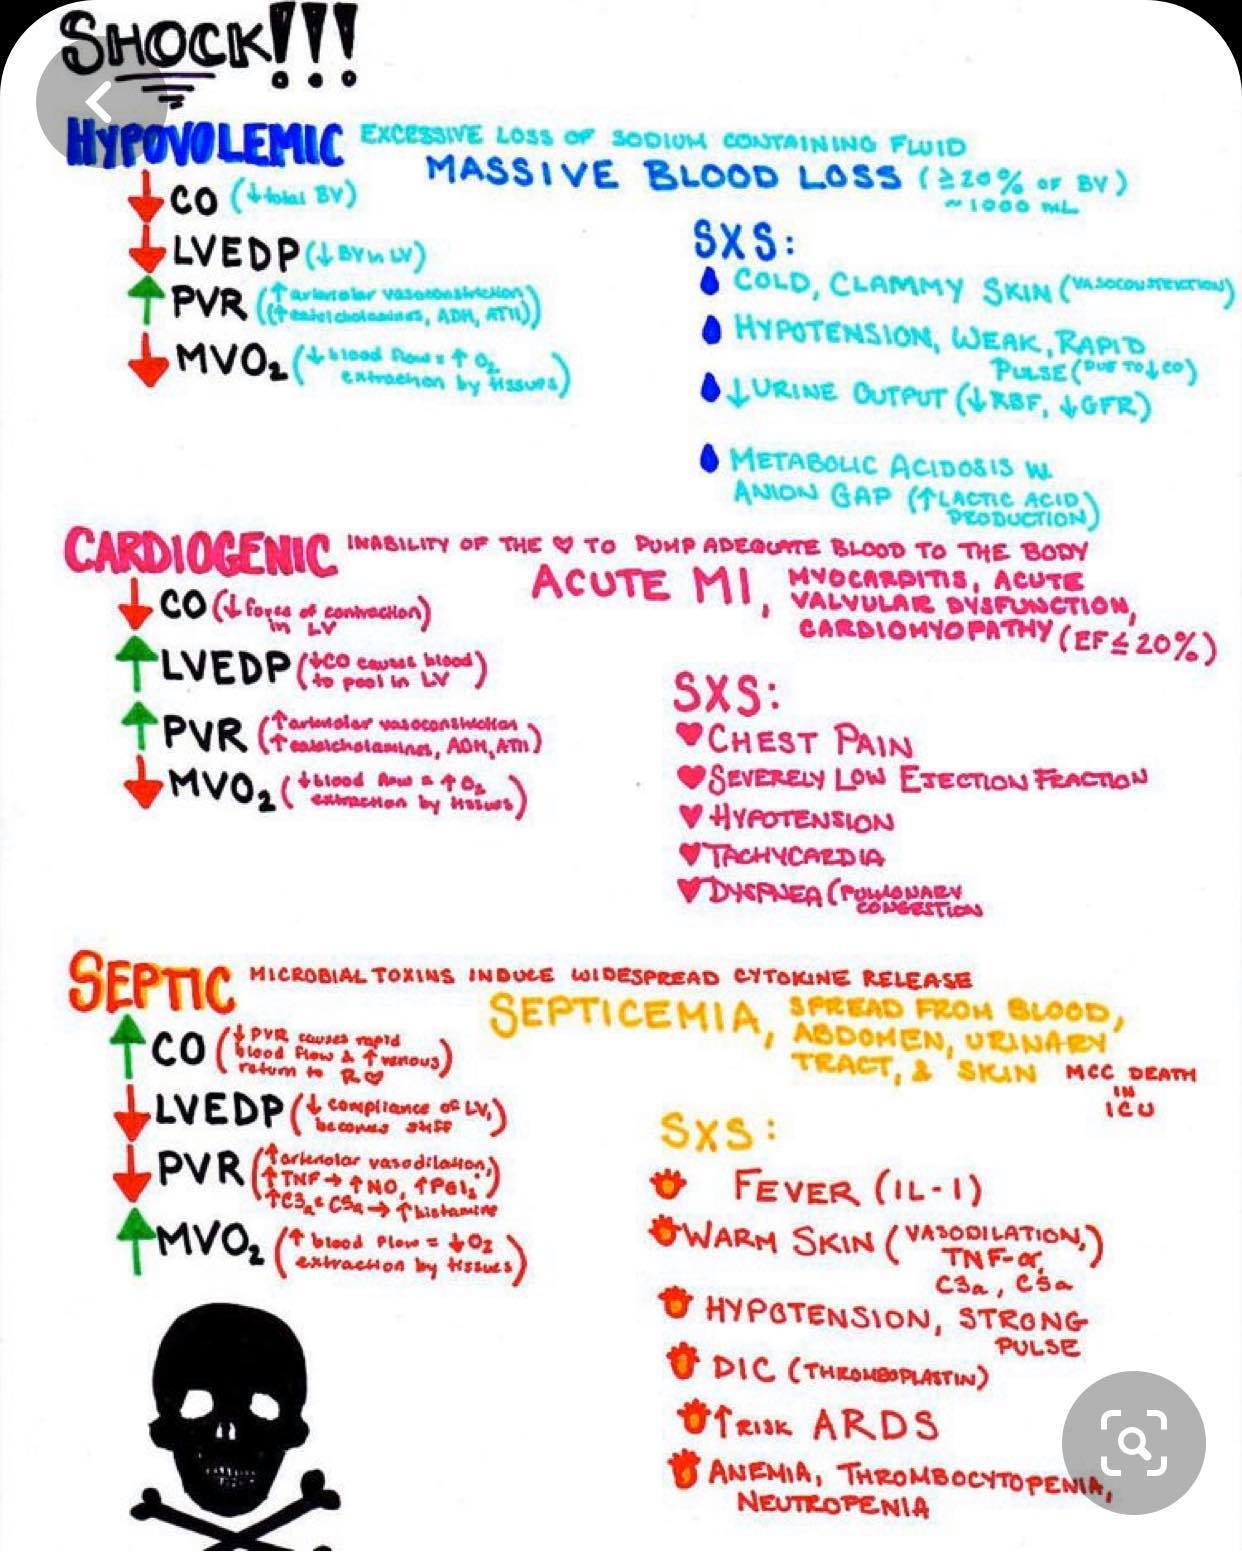 SHOCK!!!
HYPOVOLEMIC EXCESSIVE LOSS OF SODIUM CONTAINING FLUID
MASSIVE BLOOD LOSS (≥20% OF BV)
~1000 mL
↓ CO (↓ total BV)
↓ LVEDP (↓ BV in LV)
↑ PVR (↑ arteriolar vasoconstriction)
(↑ catecholamines, ADH, ATII))
↓ MVO₂ (↓ blood flow = ↑ O₂
extraction by tissues)
SXS:
COLD, CLAMMY SKIN (VASOCONSTRICTION)
HYPOTENSION, WEAK, RAPID
PULSE (DUE TO ↓ CO)
↓ URINE OUTPUT (↓RBF, ↓GFR)
METABOLIC ACIDOSIS W.
ANION GAP (↑LACTIC ACID
PRODUCTION)
CARDIOGENIC INABILITY OF THE ♡ TO PUMP ADEQUATE BLOOD TO THE BODY
ACUTE MI, MYOCARDITIS, ACUTE
VALVULAR DYSFUNCTION,
CARDIOMYOPATHY (EF≤20%)
↓ CO (↓ force of contraction)
in LV
↑ LVEDP (↓CO causes blood
to pool in LV)
↑ PVR (↑ arteriolar vasoconstriction
↑ catecholamines, ADH, ATII)
↓ MVO₂ (↓ blood flow = ↑ O₂
extraction by tissues)
SXS:
♥ CHEST PAIN
♥ SEVERELY LOW EJECTION FRACTION
♥ HYPOTENSION
♥ TACHYCARDIA
♥ DYSPNEA (PULMONARY
CONGESTION
SEPTIC MICROBIAL TOXINS INDUCE WIDESPREAD CYTOKINE RELEASE
SEPTICEMIA, SPREAD FROM BLOOD,
ABDOMEN, URINARY
TRACT, & SKIN MCC DEATH
IN
ICU
↑ CO (↓ PVR causes rapid
blood flow & ↑ venous)
return to R♡
↓ LVEDP (↓ compliance of LV,
becomes stiff)
↓ PVR (↑ arteriolar vasodilation,
↑TNF→ ↑NO, ↑PGI₂)
↑C3a & C5a → ↑ histamine
↑ MVO₂ (↑ blood flow = ↓ O₂
extraction by tissues)
SXS:
FEVER (IL-1)
WARM SKIN (VASODILATION,)
TNF-α,
C3a, C5a
HYPOTENSION, STRONG
PULSE
DIC (THROMBOPLASTIN)
↑ RISK ARDS
ANEMIA, THROMBOCYTOPENIA,
NEUTROPENIA